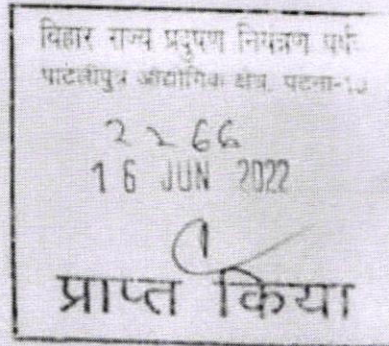 बिहार राज्य प्रदुषण नियंत्रण पर्ष
पाटलीपुत्र औद्योगिक क्षेत्र, पटना-10
2266
16 JUN 2022
प्राप्त किया